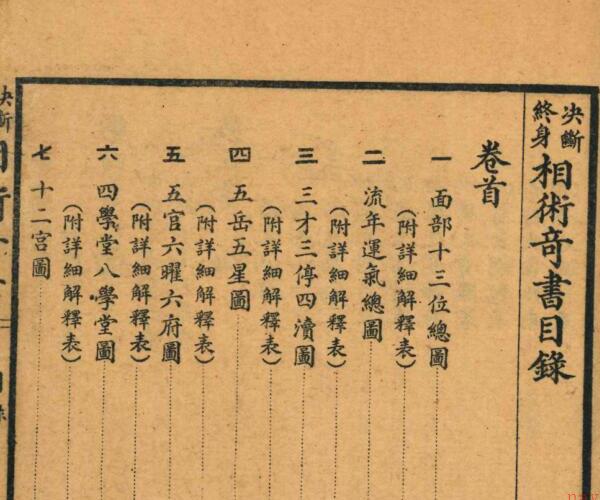 決斷終身相術奇書目錄
卷首
一 面部十三位總圖
(附詳細解釋表)
二 流年運氣總圖
(附詳細解釋表)
三 三才三停四瀆圖
(附詳細解釋表)
四 五岳五星圖
(附詳細解釋表)
五 五官六曜六府圖
(附詳細解釋表)
六 四學堂八學堂圖
(附詳細解釋表)
七 十二宮圖